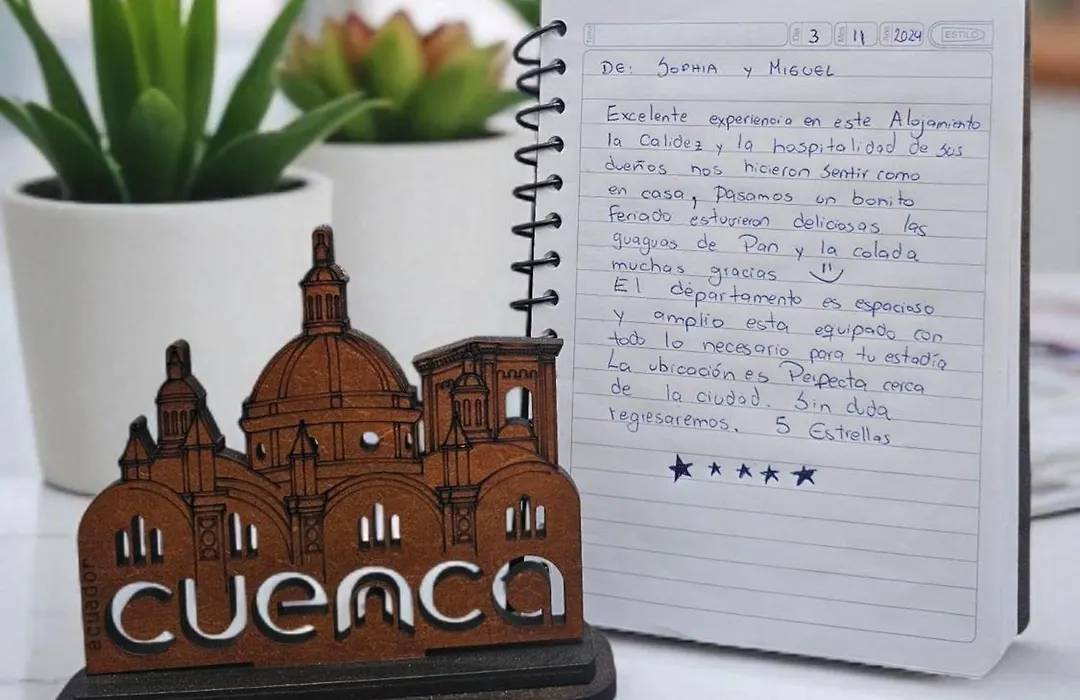 3 11 2024
ESTILO
DE: SOPHIA y MIGUEL
Excelente experiencia en este Alojamiento
la Calidez y la hospitalidad de sus
dueños nos hicieron sentir como
en casa, Pasamos un bonito
feriado estuvieron deliciosas las
guaguas de Pan y la colada
muchas gracias
El departamento es espacioso
y amplio esta equipado con
todo lo necesario para tu estadía
La ubicación es Perfecta cerca
de la ciudad. Sin duda
regresaremos. 5 Estrellas
ecuador
cuenca